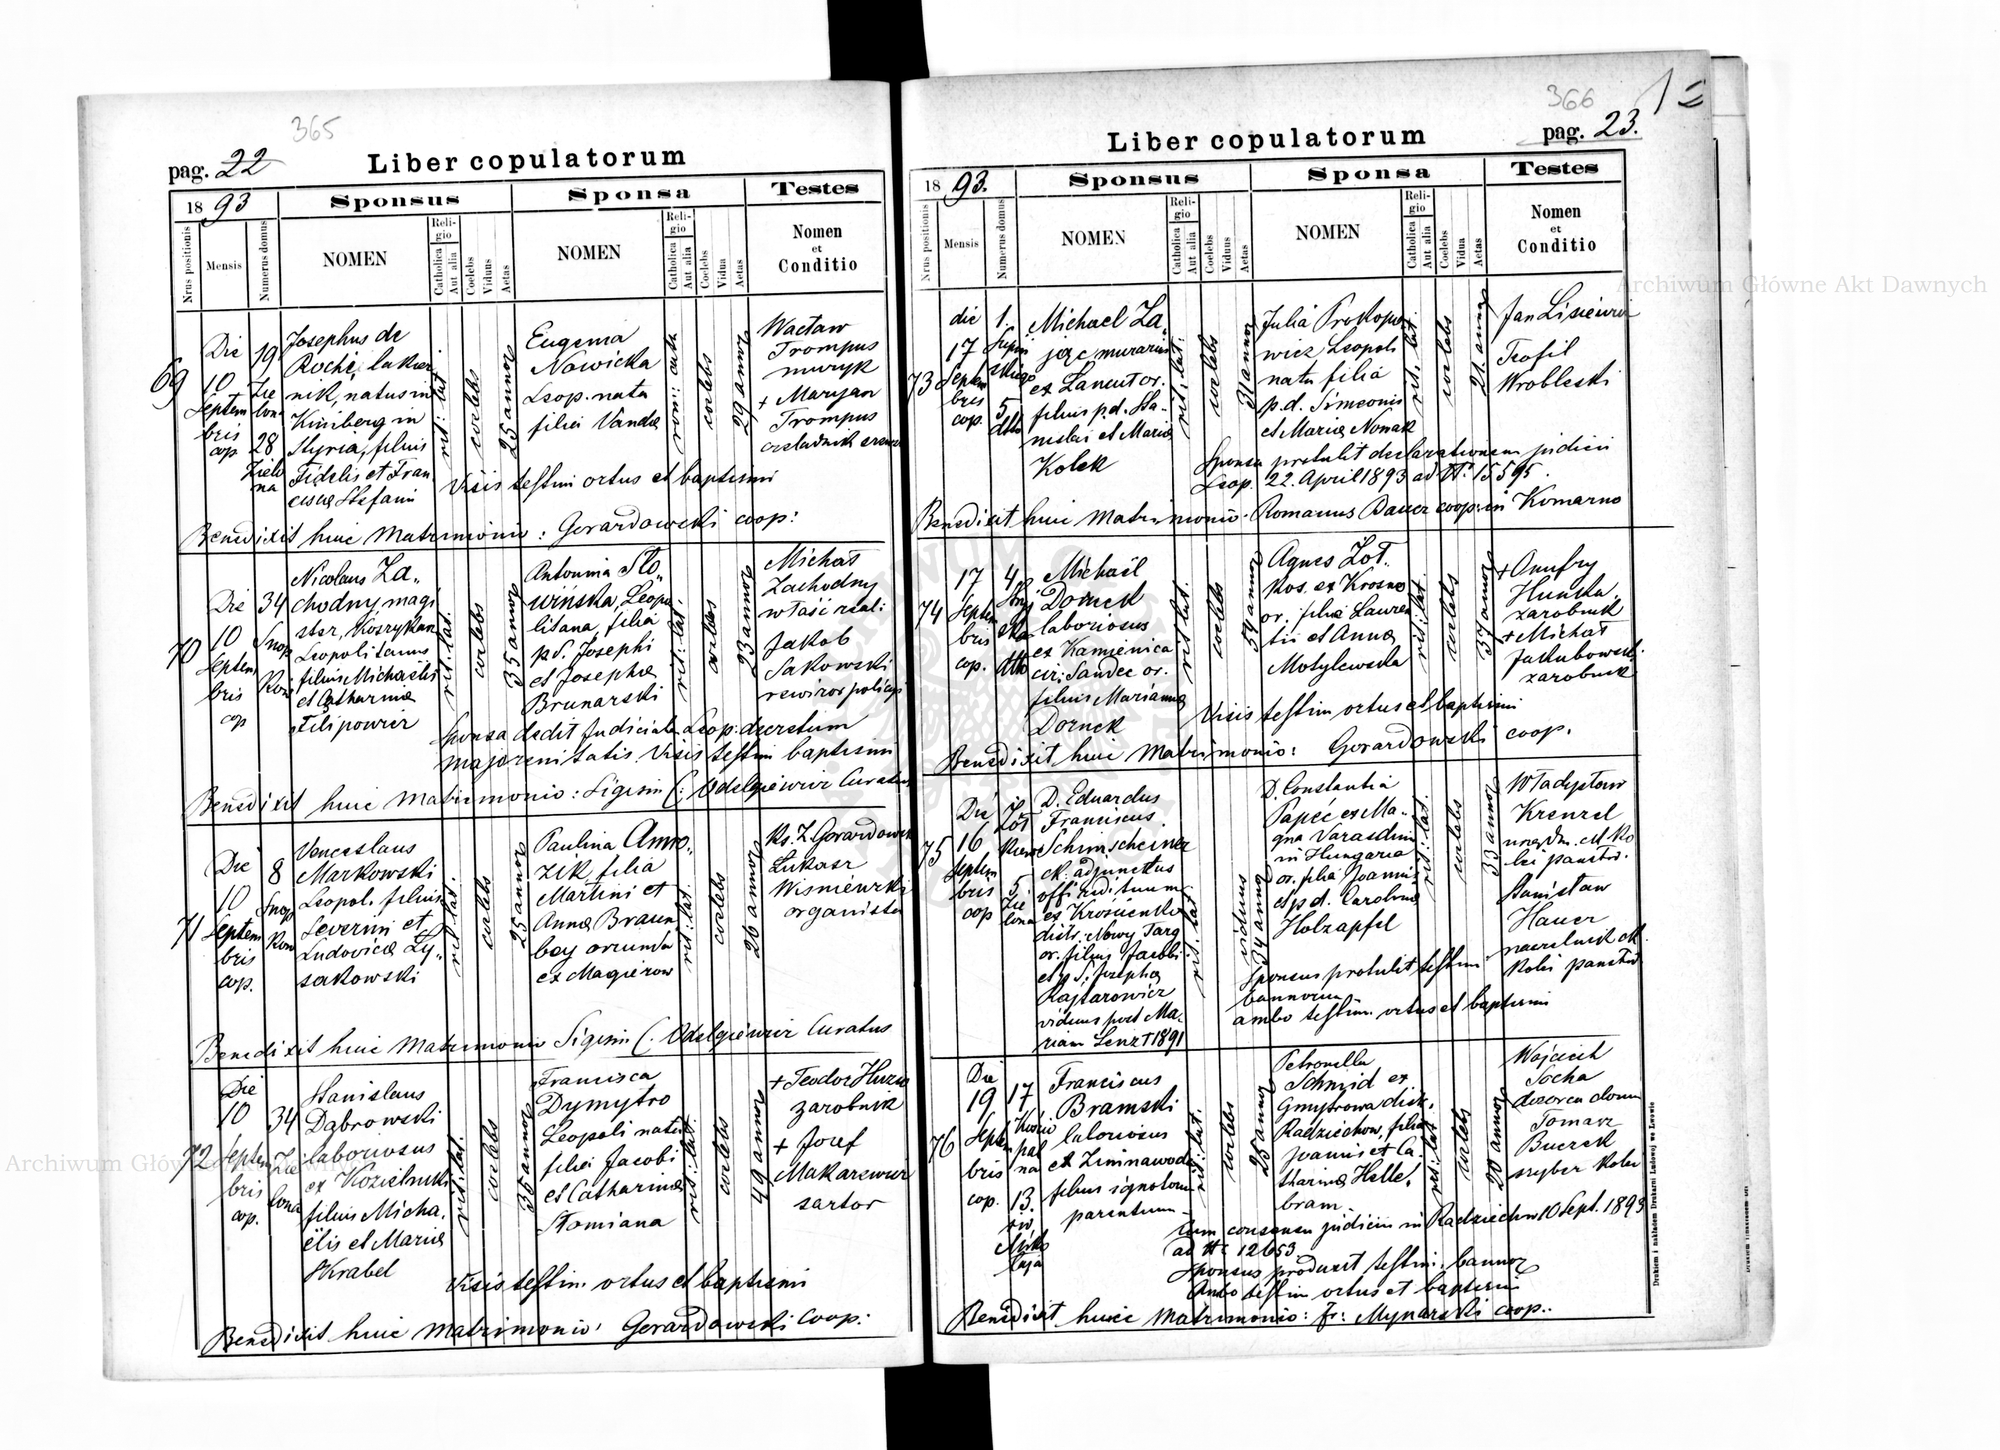 365
pag. 22
Liber copulatorum
1893
Sponsus
Sponsa
Testes
Nrus positionis
Mensis
Numerus domus
NOMEN
Religio
Catholica
Aut alia
Coelebs
Viduus
Aetas
NOMEN
Religio
Catholica
Aut alia
Coelebs
Vidua
Aetas
Nomen
et
Conditio
69
Die
10
Septem
bris
cop
19
Zie
lona
28
Zielo
na
Josephus de
Rochi, lakier
nik, natus in
Kiniberg in
Styria, filius
Fidelis et Fran
ciscae Stefani
rit: lat
coelebs
25 annor
Eugenia
Nowicka
Leop. nata
filia Vandae
coelebs
29 annor
Wacław
Trompus
muryk
+ Maryan
Trompus
czeladnik
Visis testim ortus et baptismi
Benedixit huic Matrimonio: Gerardowski coop:
70
Die
10
Septem
bris
cop
34
Snop
Kow
Nicolaus Za„
chodny magi
ster, Koszykar
Leopolitanus
filius Michaelis
et Catharinae
Filipowicz
rit: lat.
coelebs
35 annor
Antonina Sło„
wińska, Leopo
litana, filia
p.d. Josephi
et Josephae
Brunarski
rit: lat.
coelebs
23 annor
Michał
Zachodny
właść real:
Jakob
Sakowski
rewizor policyi
Sponsa dedit Judiciale Leop: decretum
majorenitatis. Visis testim baptismi
Benedixit huic Matrimonio: Sigism C: Odelgiewicz Curatus
71
Die
10
Septem
bris
cop.
8
Snop
Kow
Venceslaus
Markowski
Leopol. filius
Severini et
Ludovicae Ly„
sakowski
rit: lat.
coelebs
25 annor
Paulina Amro„
zik, filia
Martini et
Annae Braun
bey oriunda
ex Magierow
rit: lat.
coelebs
26 annor
Ks. Z. Gerardowski
Łukasz
Wisniewski
organista
Benedixit huic Matrimonio Sigism C. Odelgiewicz Curatus
72
Die
10
Septem
bris
cop.
34
Zie
lona
Stanislaus
Dąbrowski
laboriosus
ex Kozielniki
filius Micha„
elis et Mariae
Skrabel
rit: lat.
coelebs
35 annor
Francisca
Dymytro
Leopoli nata
filia Jacobi
et Catharinae
Słomiana
rit: lat.
coelebs
49 annor
+ Teodor
zarobnik
+ Josef
Makarewicz
sartor
Visis testim. ortus et baptismi
Benedixit huic Matrimonio: Gerardowski Coop:
366
Liber copulatorum
pag. 23.
1893.
Sponsus
Sponsa
Testes
Nrus positionis
Mensis
Numerus domus
NOMEN
Religio
Catholica
Aut alia
Coelebs
Viduus
Aetas
NOMEN
Religio
Catholica
Aut alia
Coelebs
Vidua
Aetas
Nomen
et
Conditio
73
die
17
Septem
bris
cop.
1.
5
dtto
Michael Za„
jąc murarius
ex Lancut or.
filius p.d. Sta„
nislai et Mariae
Kolek
rit: lat:
coelebs
31 annor
Julia Prokopo
wicz, Leopoli
nata filia
p.d. Simeonis
et Mariae Nowak
rit: lat
coelebs
21 annor
Jan Lisiewicz
Teofil
Wrobleski
Sponsa protulit declarationem judicii
Leop. 22. April 1893 ad No: 15595.
Benedixit huic Matrimonio: Romanus Bauer coop: in Komarno
74
17
Septem
bris
cop.
4
dtto
Michaël
Dornek
laboriosus
ex Kamienica
cir: Sandec or.
filius Mariannae
Dornek
rit: lat.
coelebs
54 annor
Agnes Zoł„
kos. ex Krosno
or. filia Lauren
tii et Annae
Motylewska
rit: lat.
coelebs
37 annor
+ Onufry
zarobnik
+ Michał
Jakubowski
zarobnik
Visis testim ortus et baptismi
Benedixit huic Matrimonio: Gerardowski coop.
75
Die
16
Septem
bris
cop
Żoł
kiew
5
Zie
lona
D. Eduardus
Franciscus
Schimscheiner
ck. adjunctus
ex Krościenko
distr. Nowy Targ
or. filius Jacobi
et p.d. Josephae
Rajtarowicz
viduus post Ma„
riam Lenz +1891
rit: lat
viduus
34 annor
D. Constantia
Papée ex Ma„
gna Varasdin
in Hungaria
or. filia Joannis
et p.d. Carolinae
Holzapfel
rit: lat.
coelebs
33 annor
Władysław
Krenzel
urzędn. ck ko
lei państw.
Stanisław
Hauer
naczelnik ck.
kolei państw
Sponsus protulit testim
bannorum
ambo testim. ortus et baptismi
76
Die
19
Septem
bris
cop.
17
13.
św.
Miko
łaja
Franciscus
Bramski
laboriosus
ex Zimnawoda
filius ignotorum
parentum
rit: lat.
coelebs
25 annor
Petronella
Schmid ex
Radziechow, filia
Joannis et Ca„
tharinae Helle„
bram
rit: lat
coelebs
20 annor
Wojciech
Socha
dozorca domu
Tomasz
Buczek
szyber kolei
Cum consensu judicii in Radziechow 10 Sept. 1893
ad No 12653
Sponsus produxit testim. bannor
Ambo testim ortus et baptismi
Benedixit huic Matrimonio: Fr: Mynarski coop.
Drukiem i nakładem Drukarni Ludowej we Lwowie
Archiwum Główne Akt Dawnych
Archiwum Główne Akt Dawnych